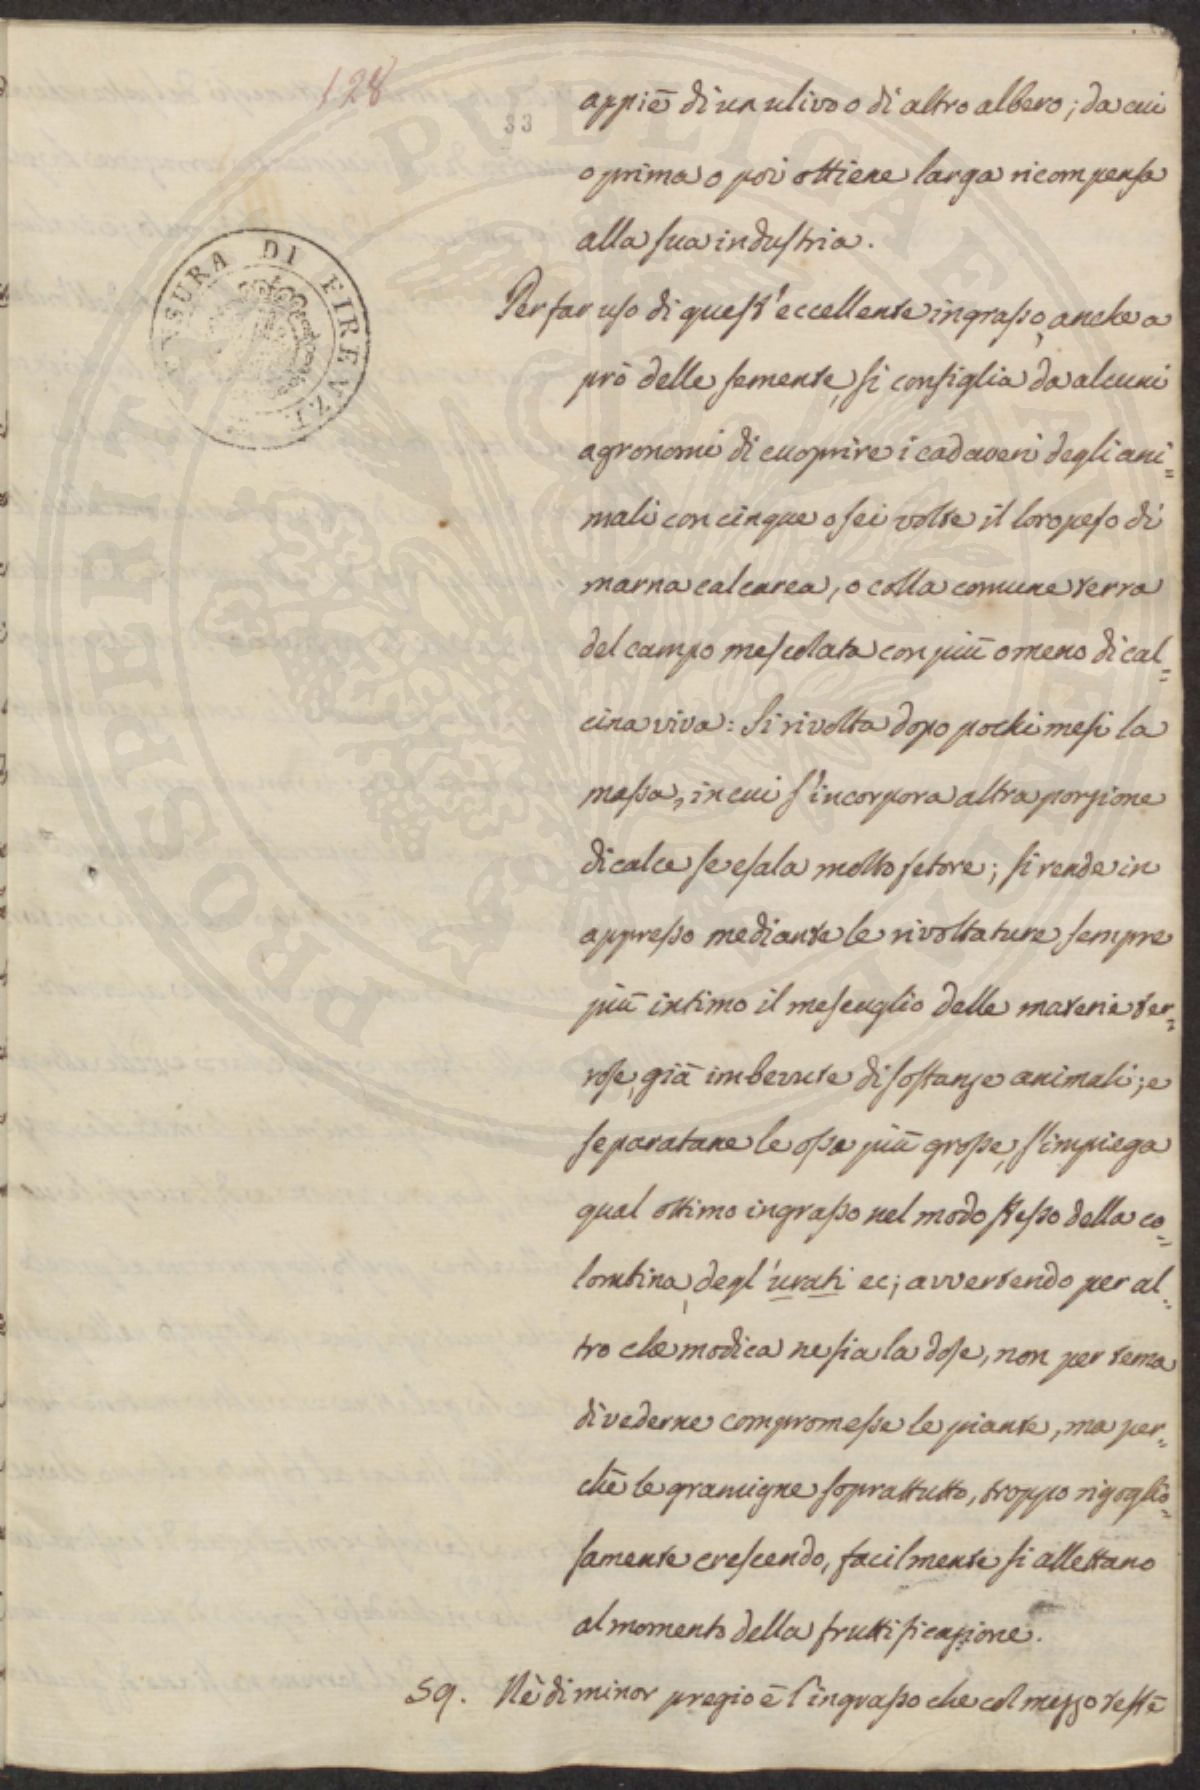 128
33
CENSURA DI FIRENZE
PROSPERITATI PUBLICAE AUGENDAE
appiè di un ulivo o di altro albero; da cui
o prima o poi ottiene larga ricompensa
alla sua industria.
Per far uso di quest'eccellente ingrasso, anche a
prò delle semente, si consiglia da alcuni
agronomi di cuoprire i cadaveri degli ani=
mali con cinque o sei volte il loro peso di
marna calcarea, o colla comune terra
del campo mescolata con più o meno di cal=
cina viva: Si rivolta dopo pochi mesi la
massa, in cui s'incorpora altra porzione
di calce se esala molto fetore; si rende in
appresso mediante le rivoltature sempre
più intimo il mescuglio delle materie ter=
rose, già imbevute di sostanze animali; e
separatane le ossa più grosse, s'impiega
qual ottimo ingrasso nel modo stesso della co=
lombina, degl'urati ec; avvertendo per al=
tro che modica ne sia la dose, non per tema
di vederne compromesse le piante, ma per=
chè le gramigne soprattutto, troppo rigoglio=
samente crescendo, facilmente si allettano
al momento della fruttificazione.
59. Nè di minor pregio è l'ingrasso che col mezzo testè